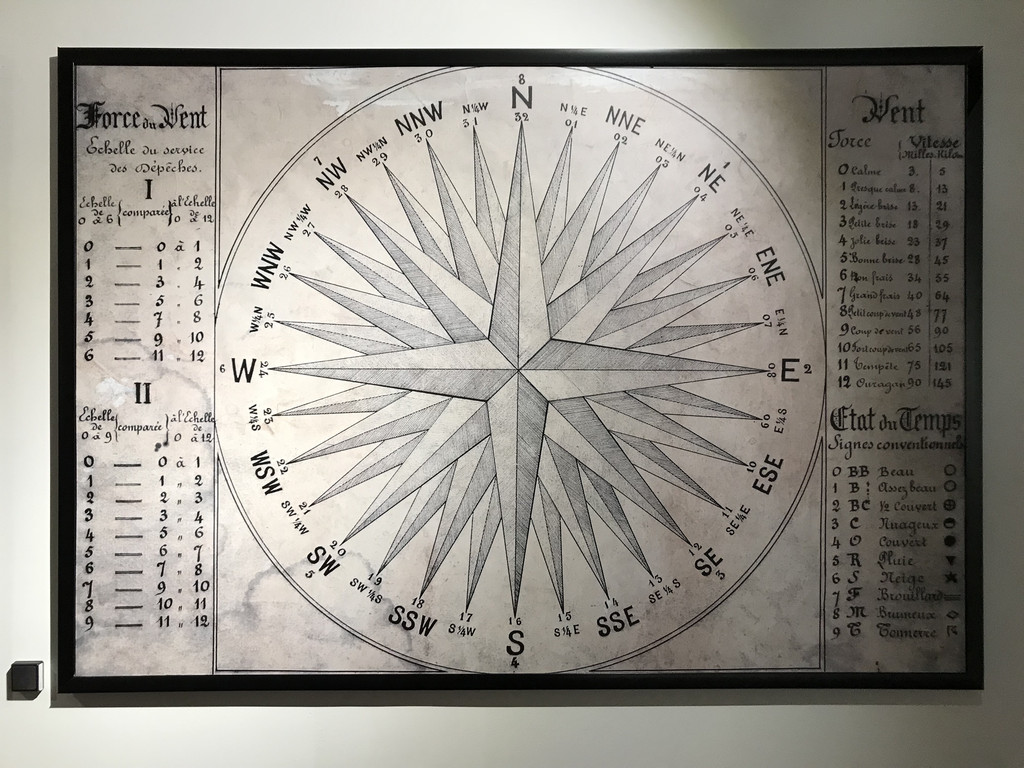 Force du Vent
Echelle du service
des Dépêches.
I
Echelle de 0 à 6 comparée à l'Echelle de 0 à 12
0 — 0 à 1
1 — 1 . 2
2 — 3 . 4
3 — 5 . 6
4 — 7 . 8
5 — 9 . 10
6 — 11 . 12
II
Echelle de 0 à 9 comparée à l'Echelle de 0 à 12
0 — 0 à 1
1 — 1 " 2
2 — 2 " 3
3 — 3 " 4
4 — 5 " 6
5 — 6 " 7
6 — 7 " 8
7 — 9 " 10
8 — 10 " 11
9 — 11 " 12
8
N
32
N¼E
01
NNE
02
NE¼N
03
1
NE
04
NE¼E
05
ENE
06
E¼N
07
E 2
08
E¼S
09
ESE
10
SE¼E
11
SE
12
3
SE¼S
13
SSE
14
S¼E
15
16
S
4
S¼W
17
SSW
18
SW¼S
19
SW
20
5
SW¼W
21
WSW
22
W¼S
23
6 W
24
W¼N
25
WNW
26
NW¼W
27
7
NW
28
NW¼N
29
NNW
30
N¼W
31
Vent
Force Vitesse
Milles. Kilom
0 Calme 3. 5
1 Presque calme 8. 13
2 Légère brise 13 21
3 Petite brise 18 29
4 Jolie brise 23 37
5 Bonne brise 28 45
6 Bon frais 34 55
7 Grand frais 40 64
8 Petit coup de vent 48 77
9 Coup de vent 56 90
10 Fort coup de vent 65 105
11 Tempête 75 121
12 Ouragan 90 145
Etat du Temps
Signes conventionnels
0 BB Beau
1 B Assez beau
2 BC ½ Couvert
3 C Nuageux
4 O Couvert
5 R Pluie
6 S Neige
7 F Brouillard
8 M Brumeux
9 T Tonnerre